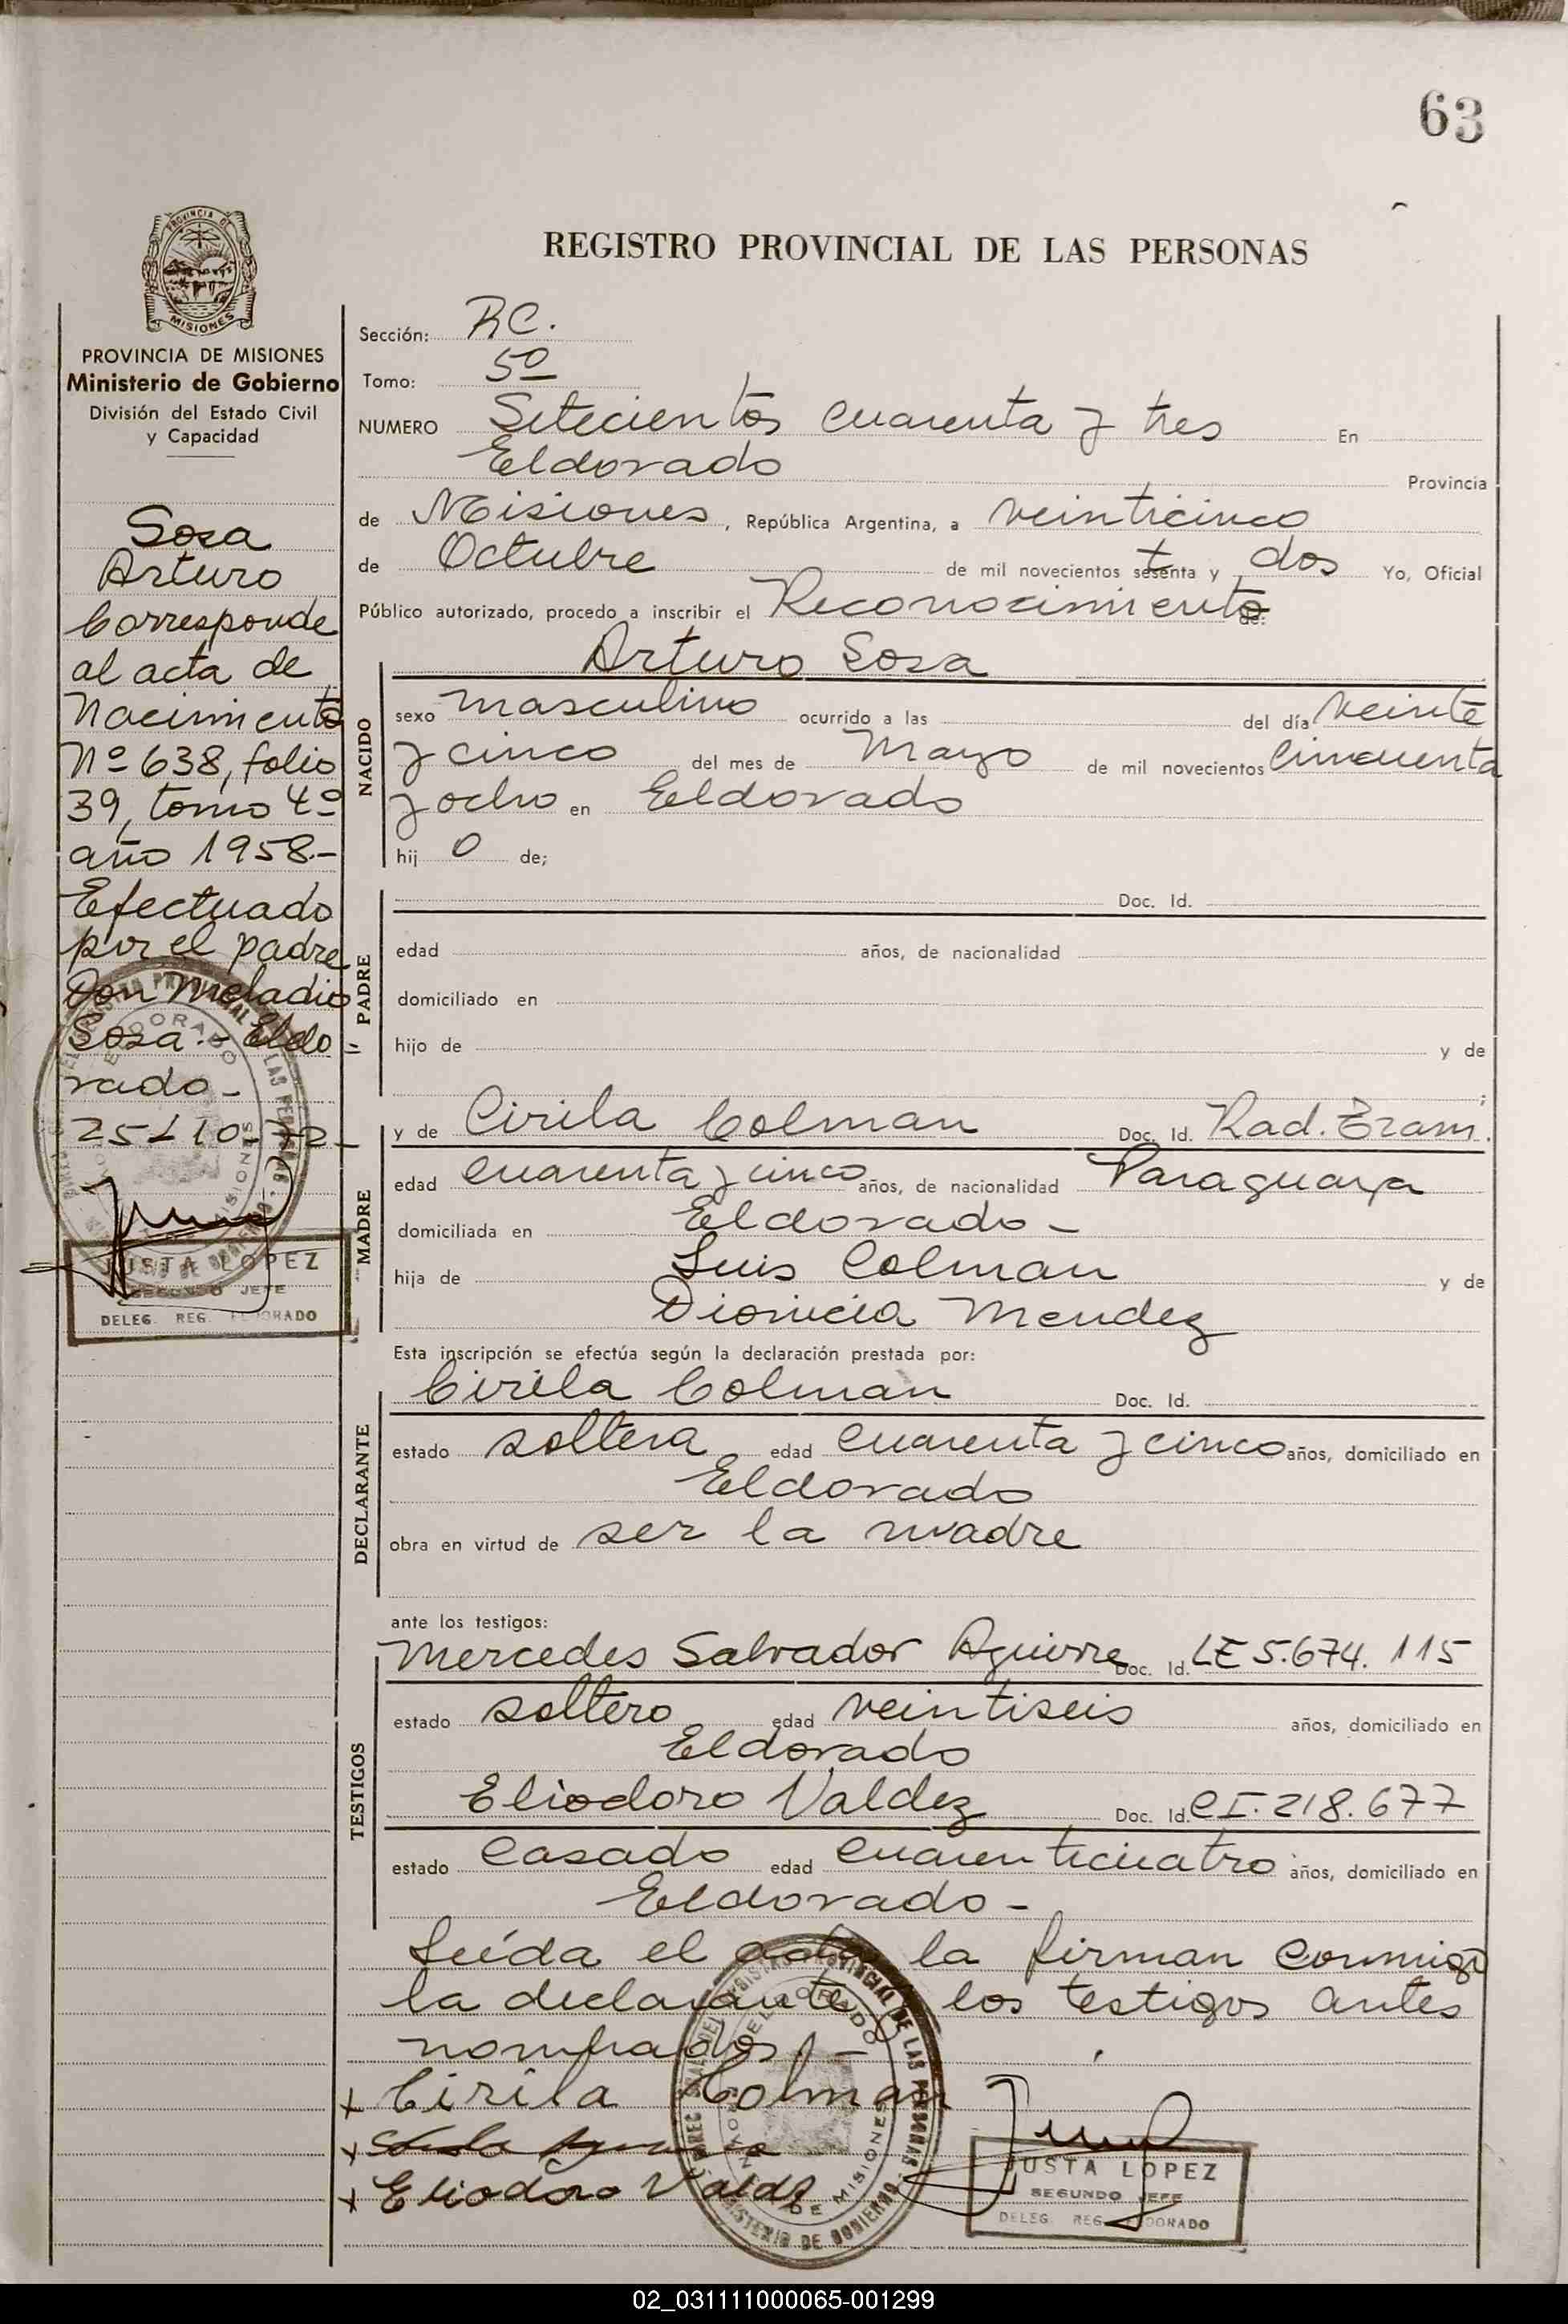 63
REGISTRO PROVINCIAL DE LAS PERSONAS
PROVINCIA DE
MISIONES
PROVINCIA DE MISIONES
Ministerio de Gobierno
División del Estado Civil
y Capacidad
Sosa
Arturo
Corresponde
al acta de
Nacimiento
Nº 638, folio
39, tomo 4º
año 1958.-
Efectuado
por el padre
Don Meladio
Sosa.- Eldo
rado-
25-10-72-
JUSTA LOPEZ
SEGUNDO JEFE
DELEG. REG. ELDORADO
Sección: RC.
Tomo: 5º
NUMERO Setecientos cuarenta y tres En
Eldorado Provincia
de Misiones, República Argentina, a veinticinco
de Octubre de mil novecientos setenta y dos Yo, Oficial
Público autorizado, procedo a inscribir el Reconocimiento de:
Arturo Sosa
NACIDO
sexo masculino ocurrido a las del día veinte
y cinco del mes de Mayo de mil novecientos cincuenta
y ocho en Eldorado
hij o de;
PADRE
Doc. Id.
edad años, de nacionalidad
domiciliado en
hijo de y de
;
MADRE
y de Cirila Colman Doc. Id. Rad. Tram.
edad cuarenta y cinco años, de nacionalidad Paraguaya
domiciliada en Eldorado-
hija de Luis Colman y de
Dionicia Mendez
Esta inscripción se efectúa según la declaración prestada por:
DECLARANTE
Cirila Colman Doc. Id.
estado soltera edad cuarenta y cinco años, domiciliado en
Eldorado
obra en virtud de ser la madre
ante los testigos:
TESTIGOS
Mercedes Salvador Aguirre Doc. Id. LE 5.674.115
estado soltero edad veintiseis años, domiciliado en
Eldorado
Eliodoro Valdez Doc. Id. CI. 218.677
estado casado edad cuarenticuatro años, domiciliado en
Eldorado-
Leída el acta, la firman conmigo
la declarante y los testigos antes
nombrados.-
x Cirila Colman
x
x Eliodoro Valdz
JUSTA LOPEZ
SEGUNDO JEFE
DELEG. REG. ELDORADO
02_031111000065-001299